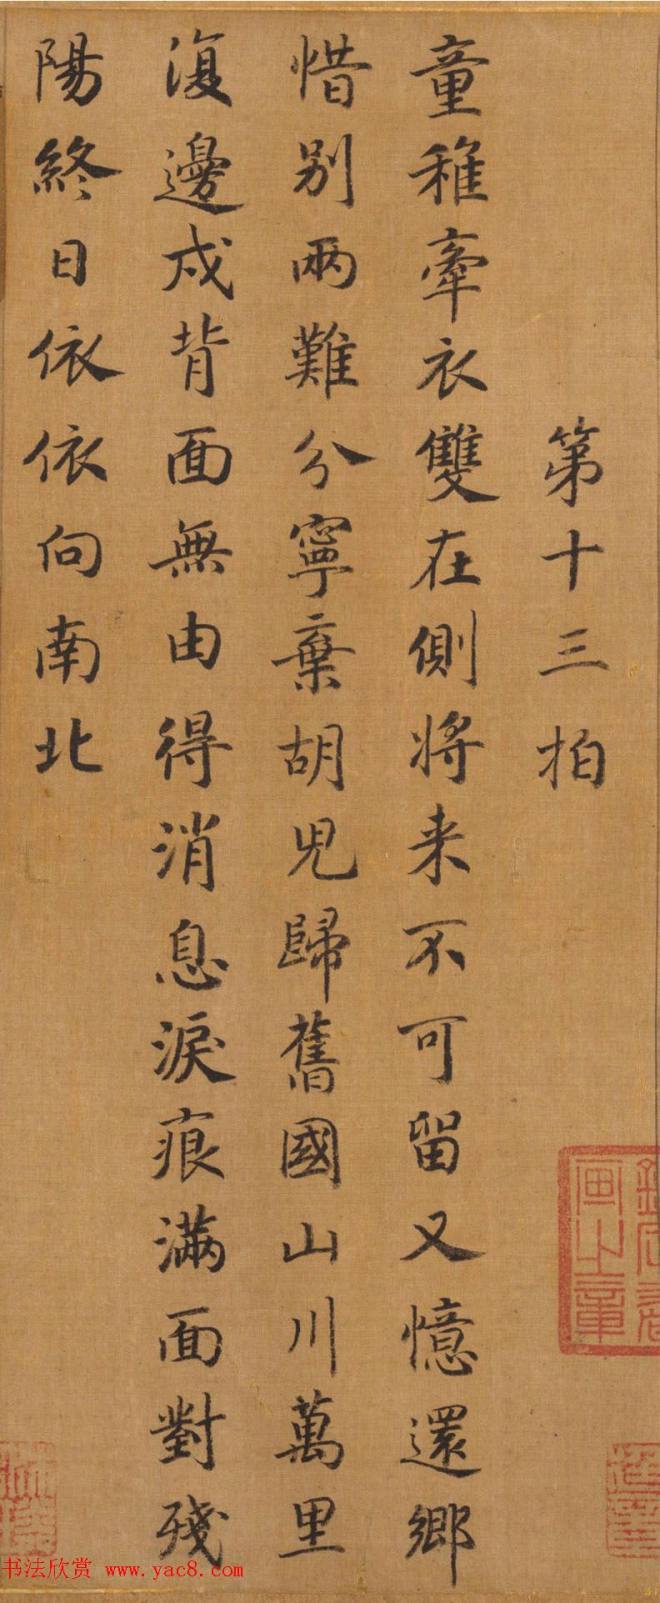 第十三拍
童稚牽衣雙在側將来不可留又憶還鄉
惜別兩難分寧棄胡兒歸舊國山川萬里
復邊戍背面無由得消息淚痕滿面對殘
陽終日依依向南北
书法欣赏 www.yac8.com